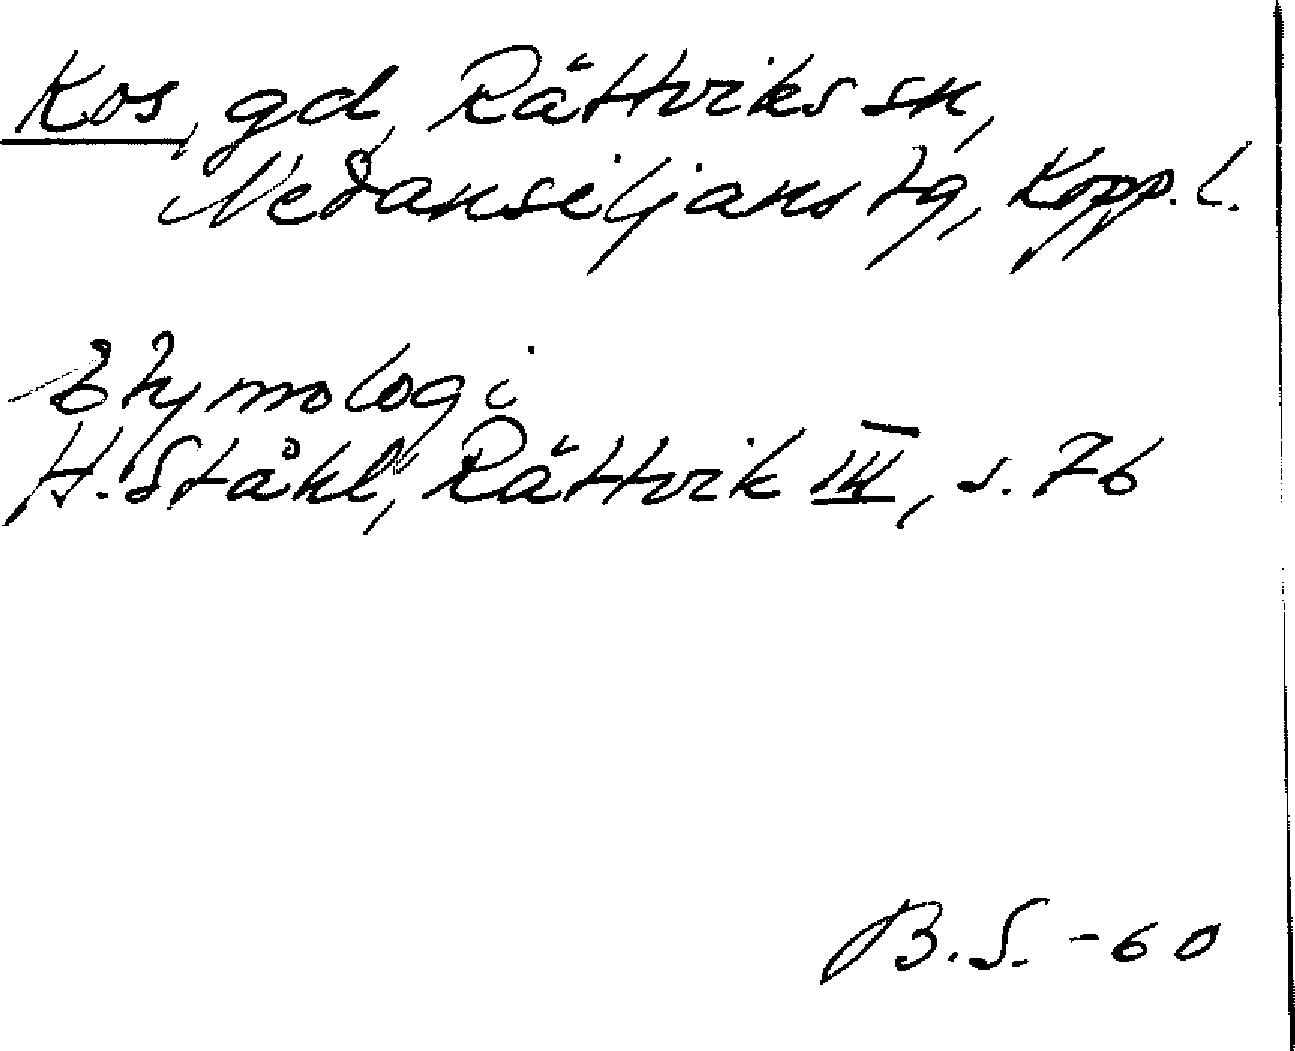 Kos, gd, Rättviks sn,
Nedansiljans tg, Kopp. l.
Etymologi
H. Ståhl, Rättvik III, s. 76
B.S. -60